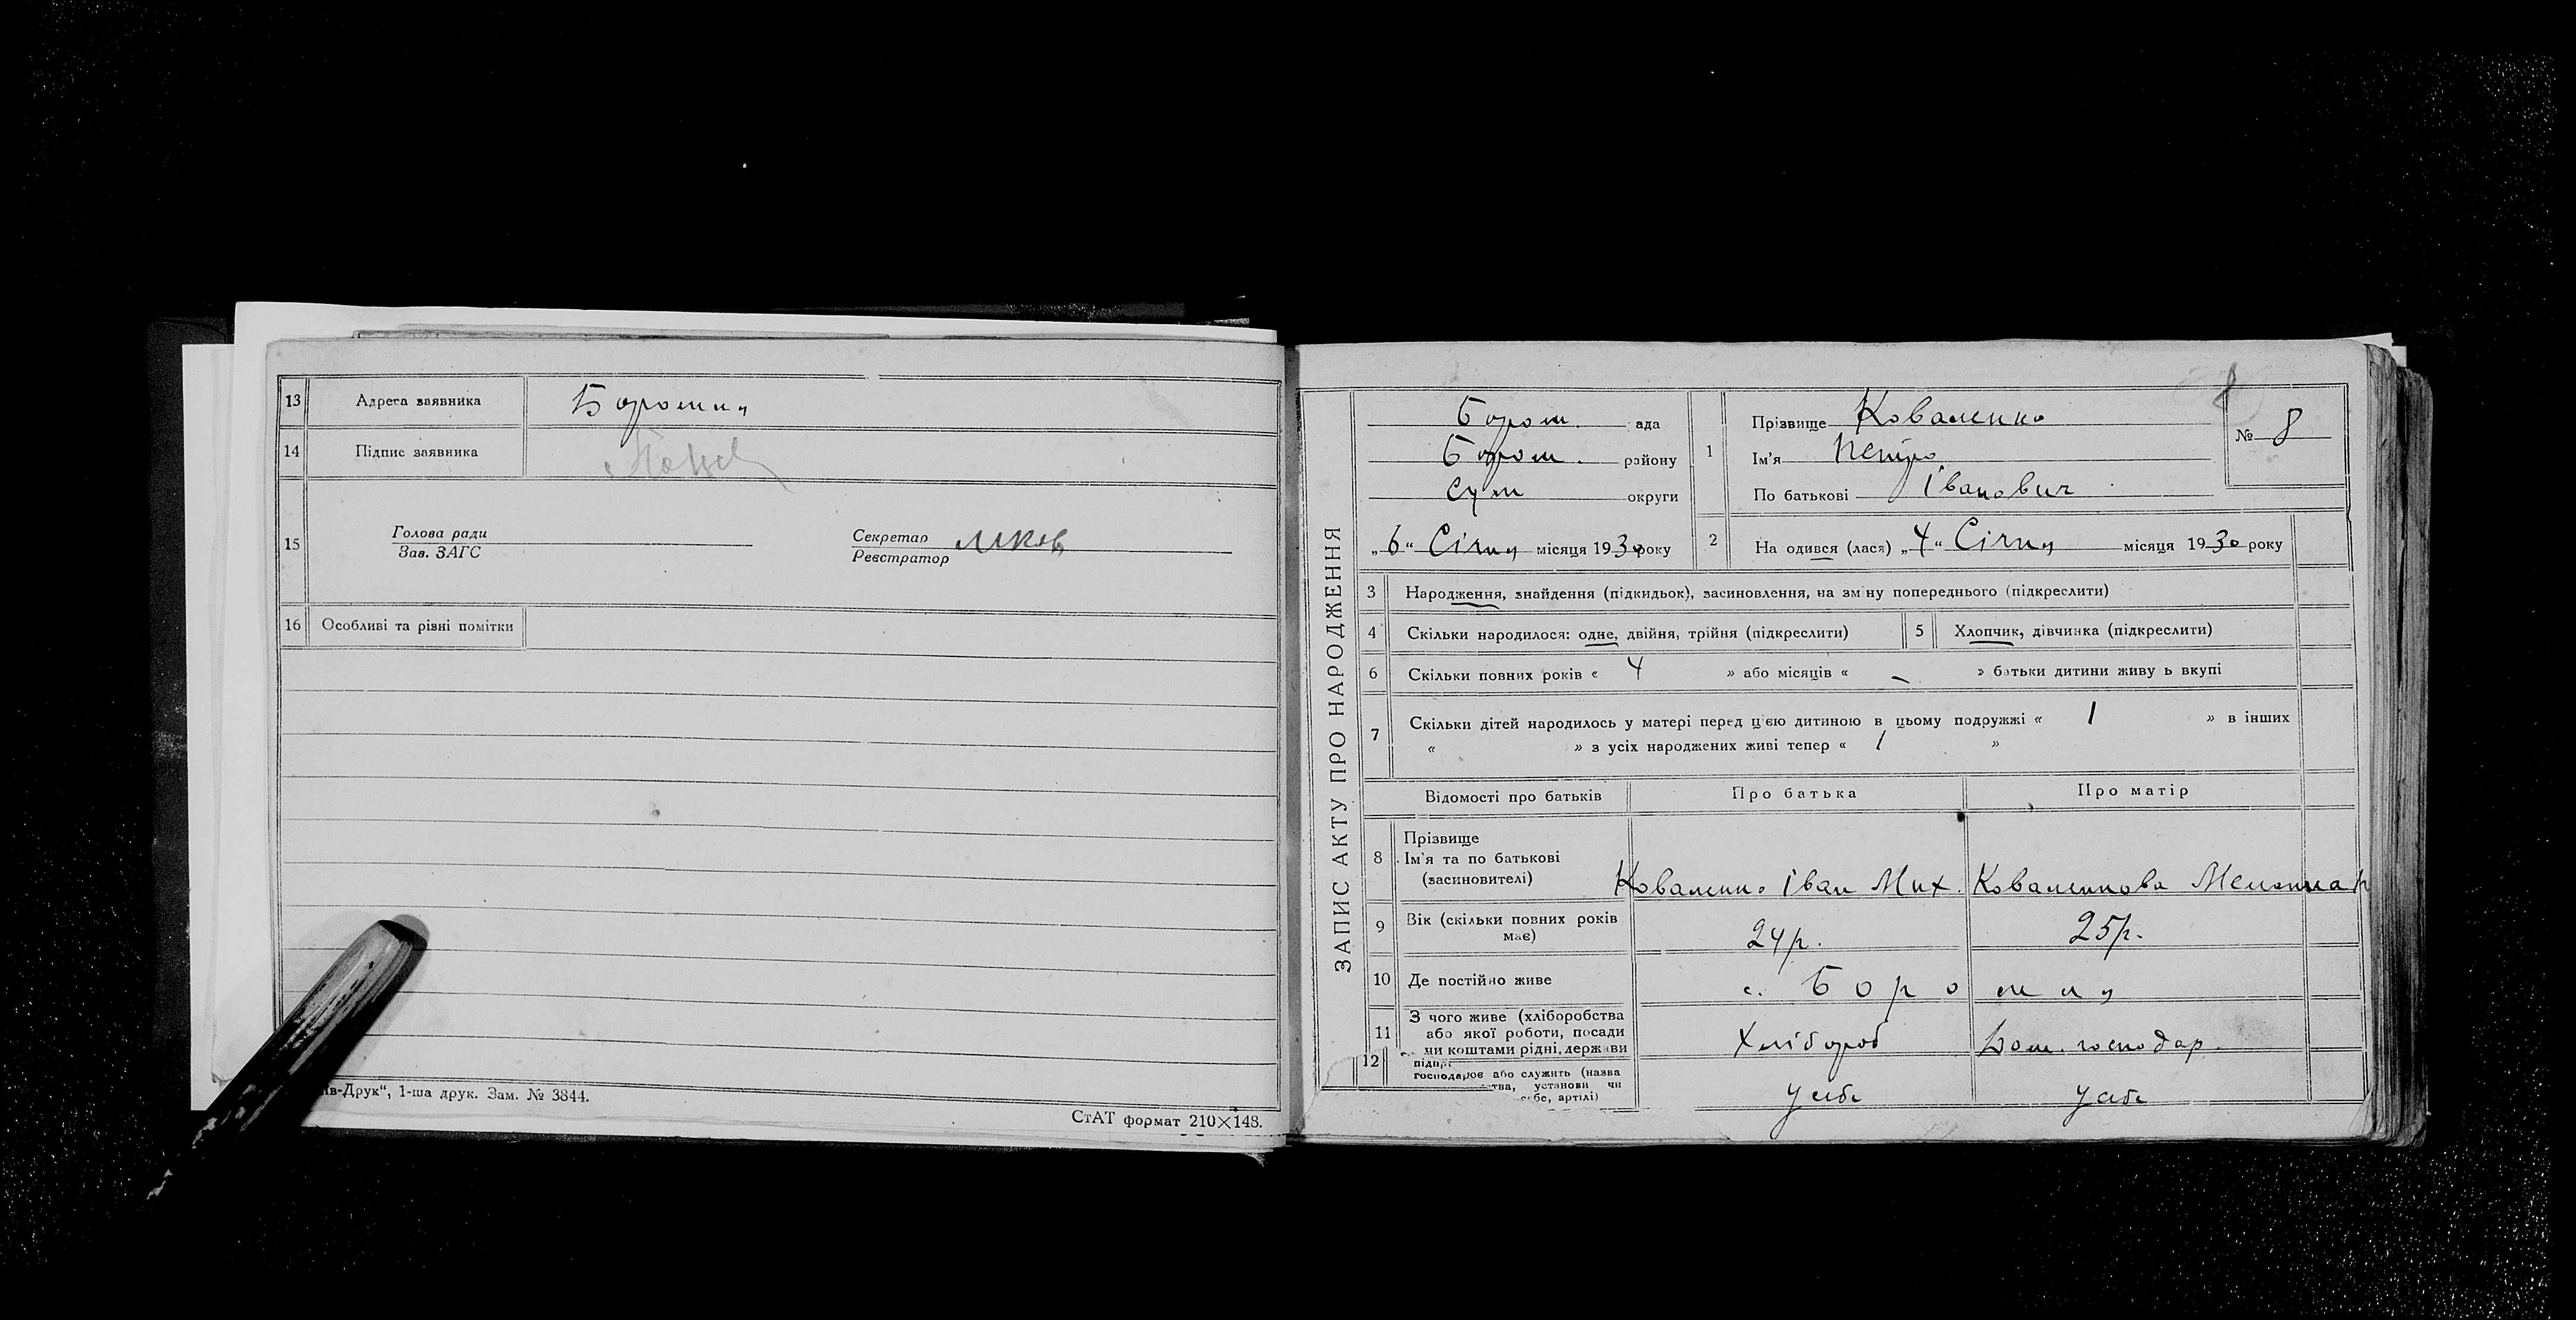 13 Адреса заявника Боромля
14 Підпис заявника
15 Голова ради Секретар
Зав. ЗАГС Реєстратор
16 Особливі та різні помітки
ів-Друк“, 1-ша друк. Зам. № 3844.
СтАТ формат 210×148.
ЗАПИС АКТУ ПРО НАРОДЖЕННЯ
8
Бором. ада
Бором. району
Сум округи
„6“ Січня місяця 1930 року
№ 8
1 Прізвище Коваленко
Ім'я Петро
По батькові Іванович
2 На одився (лася) „4“ Січня місяця 1930 року
3 Народження, знайдення (підкидьок), засиновлення, на зміну попереднього (підкреслити)
4 Скільки народилося: одне, двійня, трійня (підкреслити) 5 Хлопчик, дівчинка (підкреслити)
6 Скільки повних років « 4 » або місяців « – » батьки дитини живу ь вкупі
7 Скільки дітей народилось у матері перед цією дитиною в цьому подружжі « 1 » в інших
« » з усіх народжених живі тепер « 1 »
Відомості про батьків Про батька Про матір
8 Прізвище
Ім'я та по батькові
(засиновителі) Коваленко Іван Мих. Коваленкова Меланка
9 Вік (скільки повних років
має) 24 р. 25 р.
10 Де постійно живе с. Боромля
11 З чого живе (хліборобства
або якої роботи, посади
чи коштами рідні, держави Хлібороб Дом. господар.
12 господарює або служить (назва
тва, установи чи
себе, артілі) У себе У себе